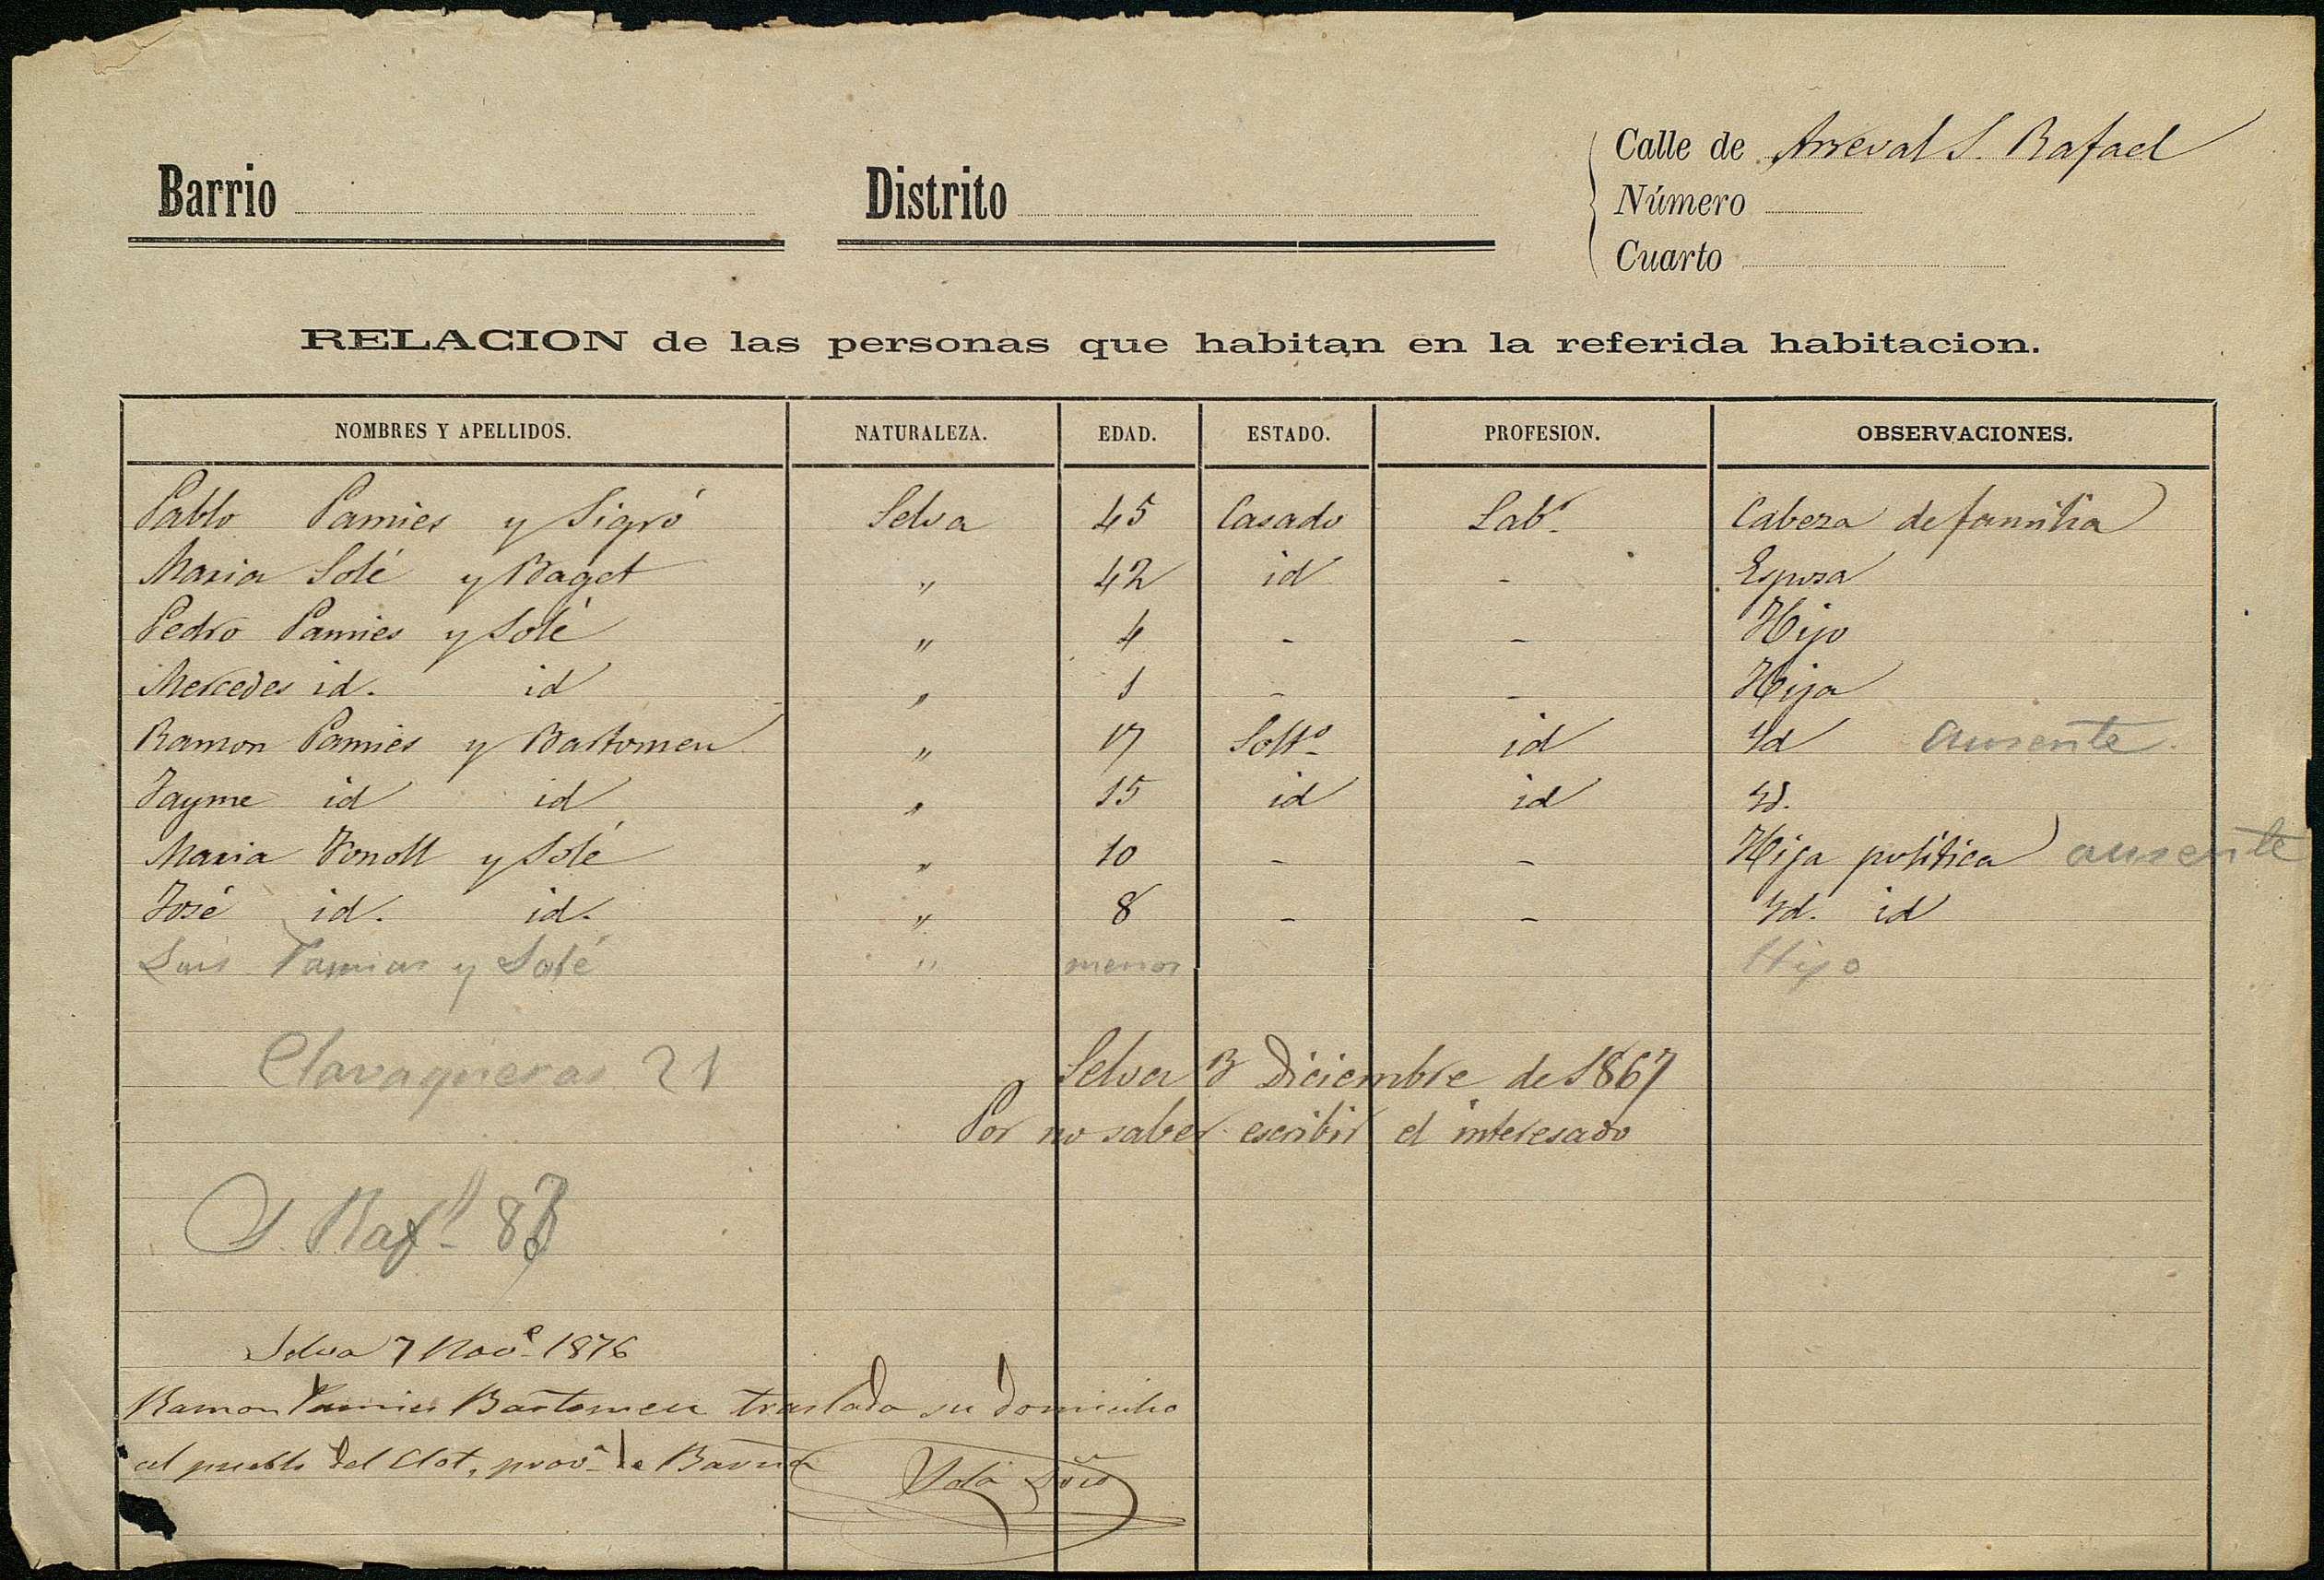 Barrio
Distrito
Calle de Arreval S. Rafael
Número
Cuarto
RELACION de las personas que habitan en la referida habitacion.
NOMBRES Y APELLIDOS. NATURALEZA. EDAD. ESTADO. PROFESION. OBSERVACIONES.
Pablo Pamies y Sigró Selva 45 Casado Labr. Cabeza de familia
Maria Solé y Baget " 42 id - Esposa
Pedro Pamies y Solé " 4 - - Hijo
Mercedes id. id " 1 - - Hija
Ramon Pamies y Bartomeu " 17 Solto id Id ausente
Jayme id id " 15 id id Id.
Maria Fonoll y Solé " 10 - - Hija politica ausente
José id. id. " 8 - - Id. id
Luis Pamies y Solé " menor Hijo
Clavagueras 21
Selva Diciembre de 1867
Por no saber escribir el interesado
S. Rafl. 8
Selva 7 Nove. 1876
Ramon Pamies Bartomeu traslada su domicilio
al pueblo del Clot, prova. de Barna